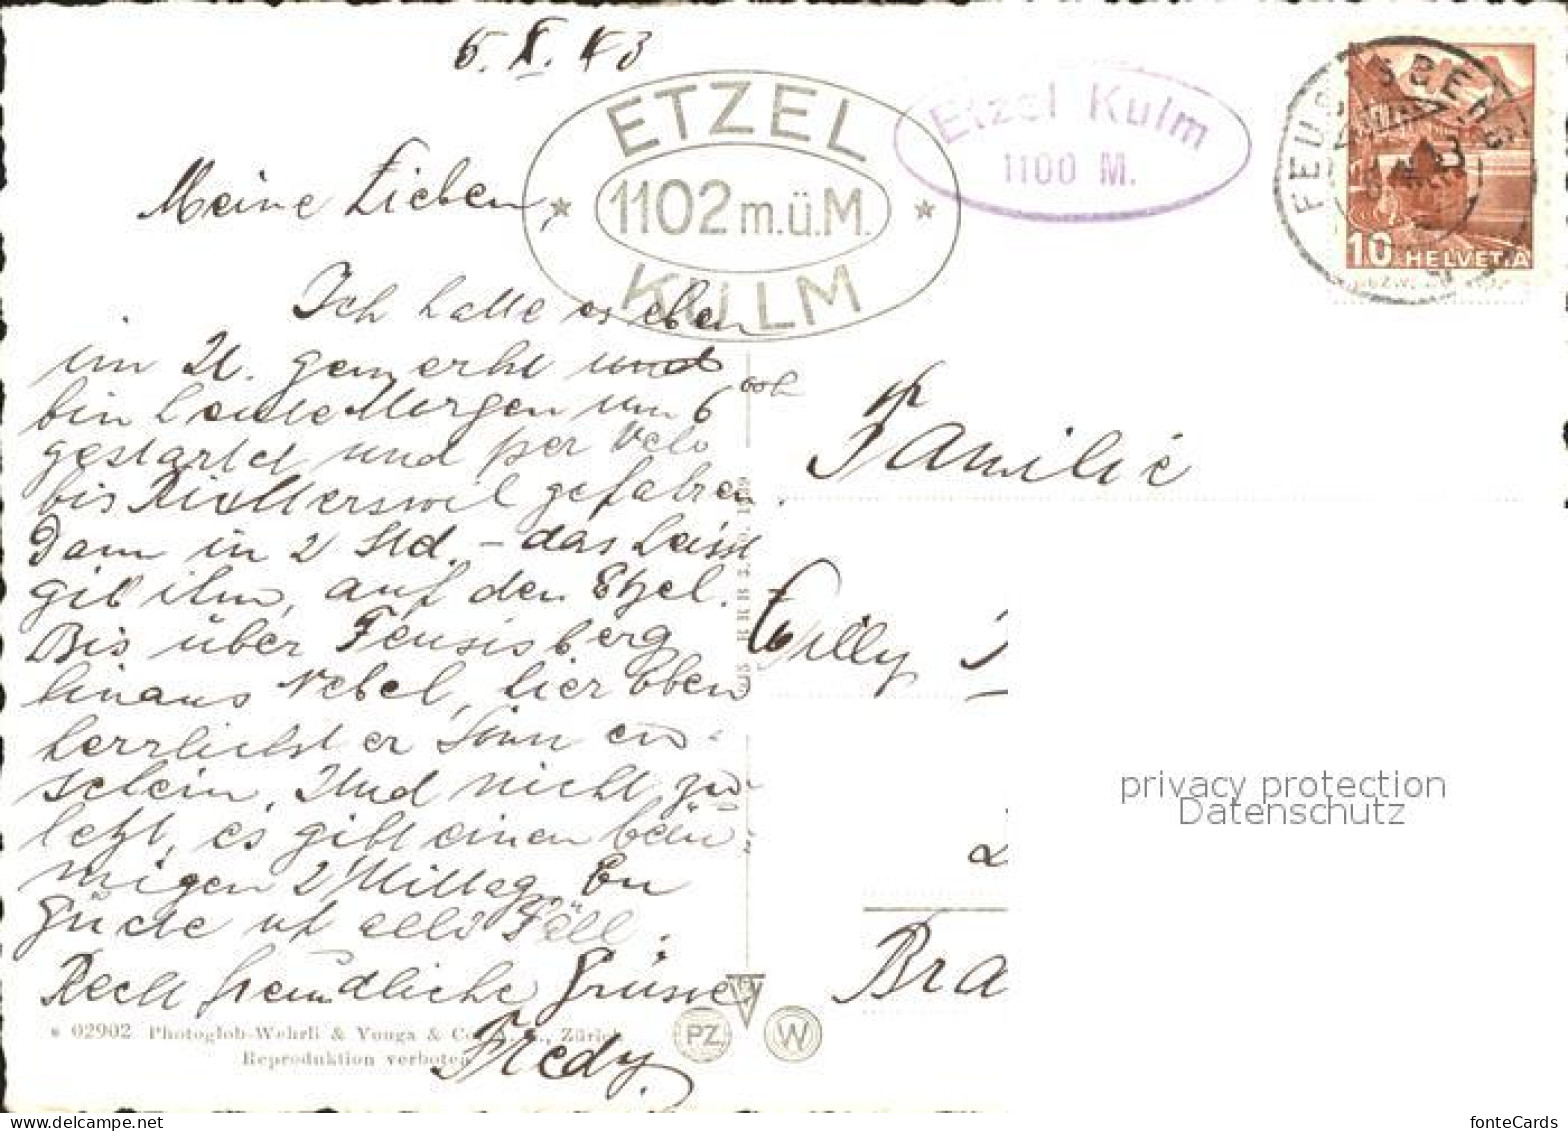 5. X. 43
ETZEL
1102 m.ü.M.
KULM
Etzel Kulm
1100 M.
FEUSISBERG
10 HELVETIA
Meine Lieben,
Ich hatte es eben
im U. gemerkt und
bin heute Morgen um 6
gestartet und per Velo
bis gefahren.
Dann in 2 Std. – das heisst
ihm, auf den Etzel.
Bis über Feusisberg
hinaus Nebel, hier oben
herrlichster Sonnen-
schein. Und nicht zu-
letzt, es gibt einen
migen z'Mittag. En
Guete uf alli Fäll.
Recht freundliche Grüsse
Fredy.
Familie
Willy
Bra
02902 Photoglob-Wehrli & Vouga & Co. A. G., Zürich
Reproduktion verboten
PZ W
privacy protection
Datenschutz
fonteCards